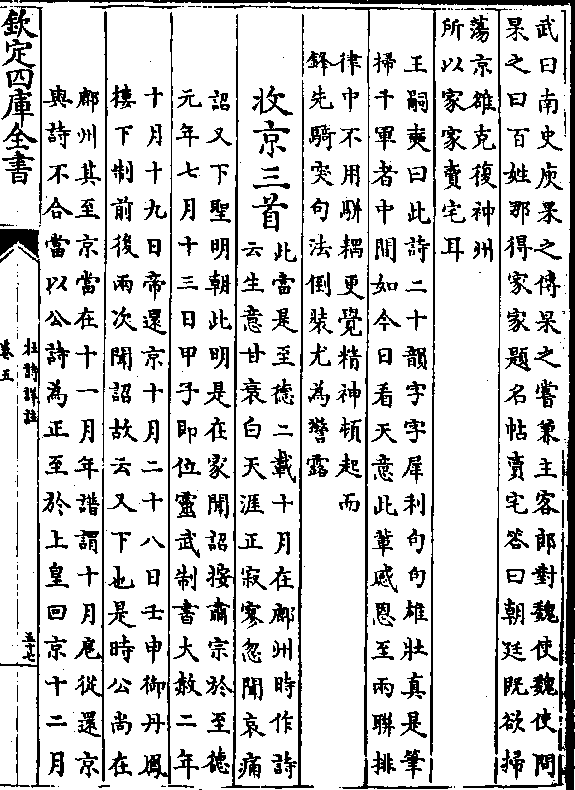 武曰南史庾杲之傳杲之嘗兼主客郎對魏使魏使問
杲之曰百姓那得家家題名帖賣宅答曰朝廷既欲掃
蕩京雒克復神州
所以家家賣宅耳
王嗣奭曰此詩二十韻字字犀利句句雄壯真是筆
掃千軍者中間如今日看天意此輩感恩至兩聯排
律中不用駢耦更覺精神頓起而
鋒先騎突句法倒裝尤為警露
收京三首
此當是至德二載十月在鄜州時作詩
云生意甘衰白天涯正寂寥忽聞哀痛
詔又下聖明朝此明是在家聞詔按肅宗於至德
元年七月十三日甲子即位靈武制書大赦二年
十月十九日帝還京十月二十八日壬申御丹鳳
樓下制前後兩次聞詔故云又下也是時公尚在
鄜州其至京當在十一月年譜謂十月扈從還京
與詩不合當以公詩為正至於上皇回京十二月
欽定四庫全書
杜詩詳註
卷五
五十七